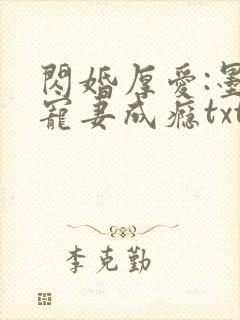 閃婚厚愛:墨
寵妻成瘾txt
李克勤